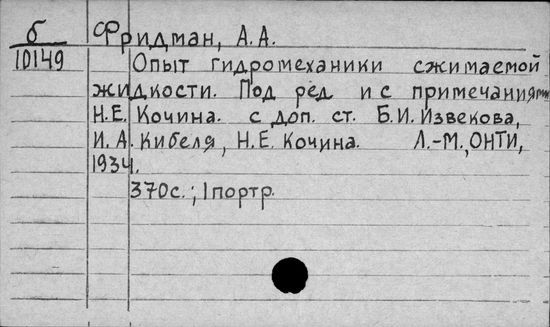 б Фридман, А.А.
10149 Опыт гидромеханики сжимаемой
жидкости. Под ред и с примечаниями
Н.Е. Кочина. с доп. ст. Б.И. Извекова,
И.А. Кибеля, Н.Е. Кочина. Л.-М., ОНТИ,
1934.
370с.; 1 портр.